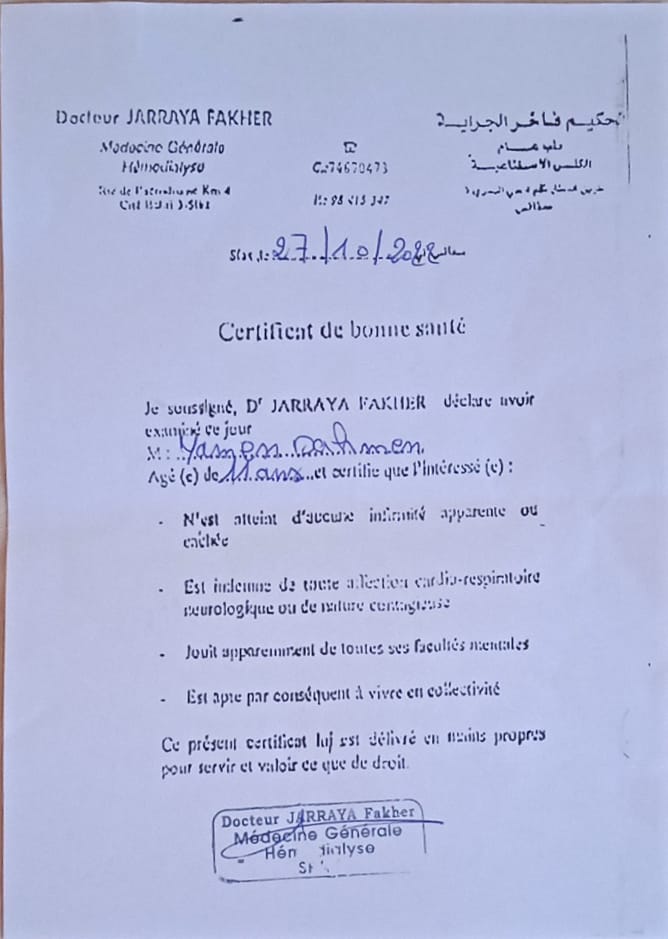 Docteur JARRAYA FAKHER
Médecine Générale
Hémodialyse
Km 4
حكيم فاخر الجراية
طب عام
الكلى الاصطناعية
صفاقس
C.:74670473
27/10/2022
Certificat de bonne santé
Je soussigné, Dr JARRAYA FAKHER déclare avoir
examiné ce jour
M : Yamen Dahmen
Agé (e) de 11 ans et certifie que l'intéressé (e) :
- N'est atteint d'aucune infirmité apparente ou
cachée
- Est indemne de toute affection cardio-respiratoire
neurologique ou de nature contagieuse
- Jouit apparemment de toutes ses facultés mentales
- Est apte par conséquent à vivre en collectivité
Ce présent certificat lui est délivré en mains propres
pour servir et valoir ce que de droit.
Docteur JARRAYA Fakher
Médecine Générale